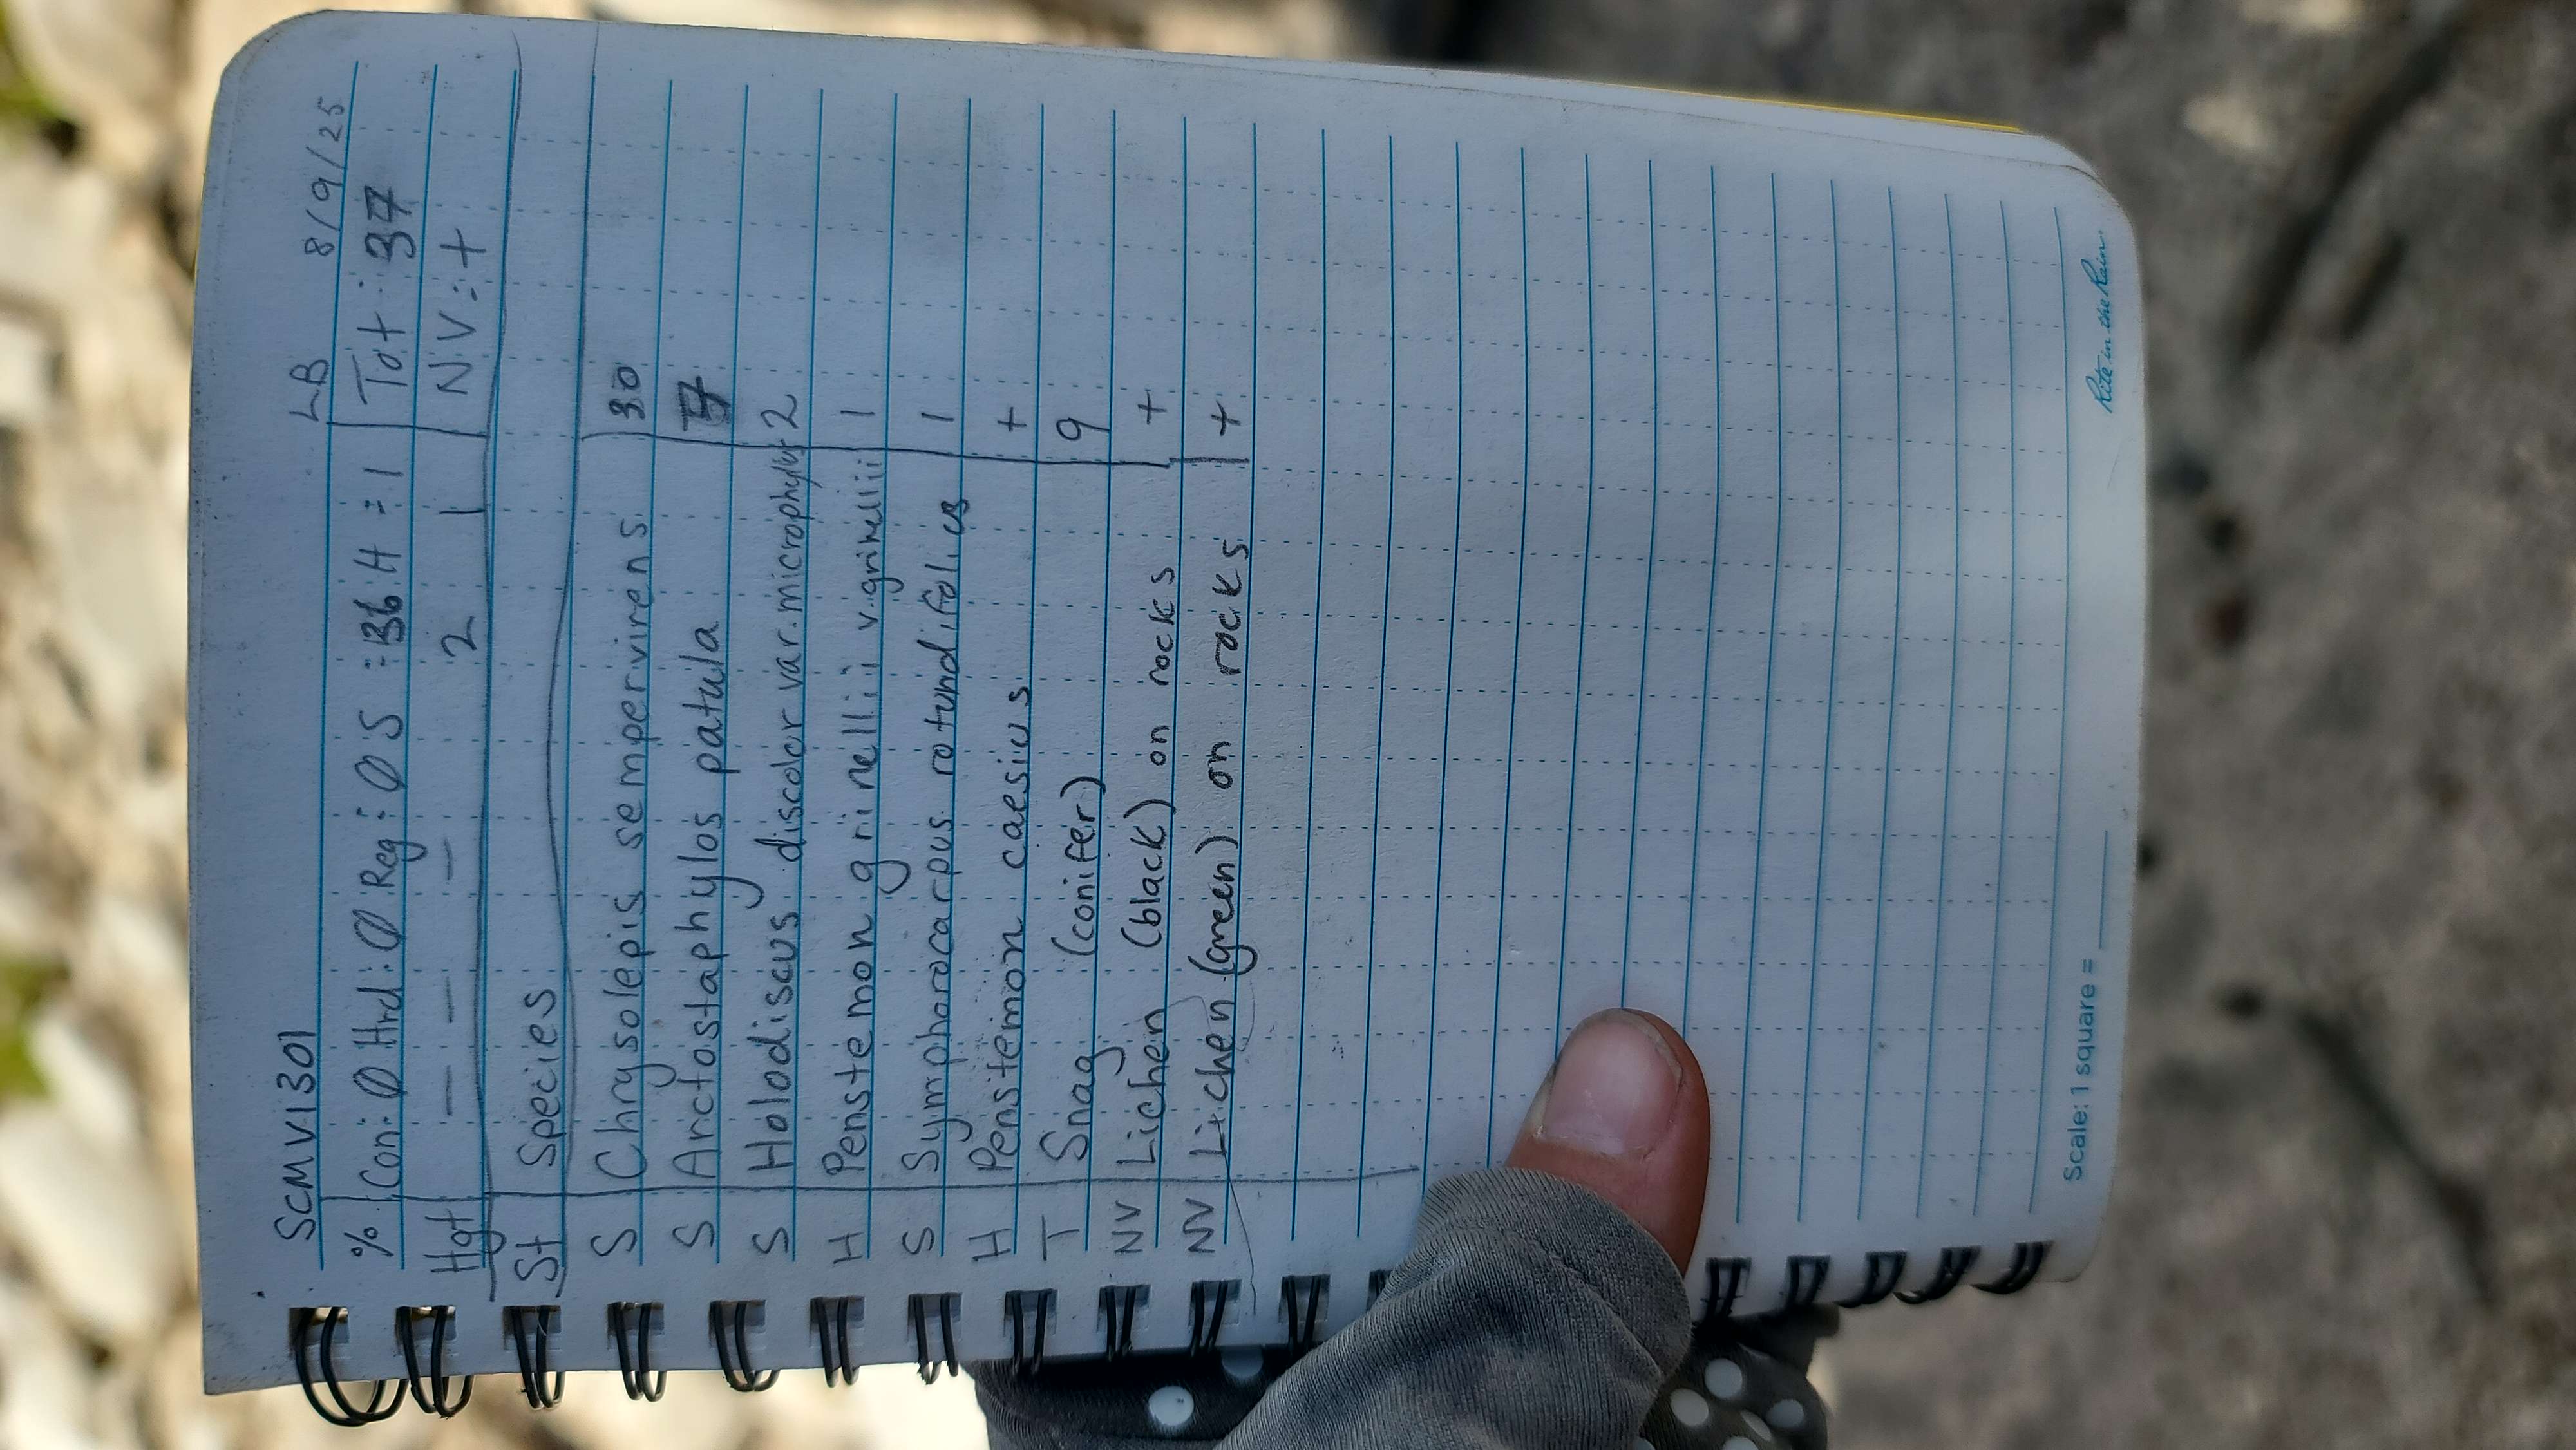 SCMV1301 LB 8/9/25
% Con: Ø Hrd: Ø Reg: Ø S: 36 H: 1 Tot: 37
Hgt — — — 2 1 NV: +
St Species
S Chrysolepis sempervirens 30
S Arctostaphylos patula
S Holodiscus discolor var. microphyllus 2
H Penstemon grinellii v. grinellii 1
S Symphorocarpus rotundifolius 1
H Penstemon caesius +
T Snag (conifer) 9
NV Lichen (black) on rocks +
NV Lichen (green) on rocks +
Scale: 1 square = ____ Rite in the Rain